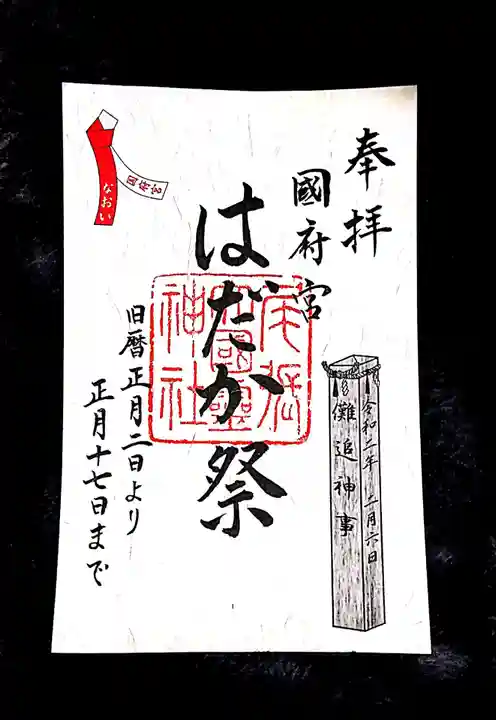 奉拝
國府宮
はだか祭
尾張
大國霊
神社
旧暦正月二日より
正月十七日まで
なおい
国府宮
儺追神事
令和二年 二月六日